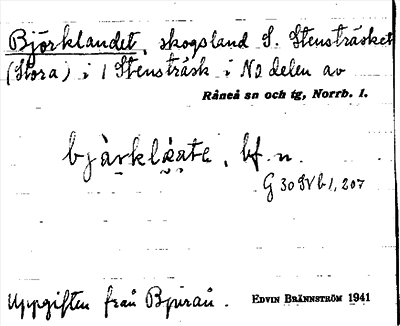 Björklandet, skogsland S. Stensträsket
(Stora) i 1 Stensträsk i NO delen av
Råneå sn och tg, Norrb. l.
bjàrklǽate, bf. n.
G 30 SV b 1, 207
Uppgiften från Bjurån.
EDVIN BRÄNNSTRÖM 1941